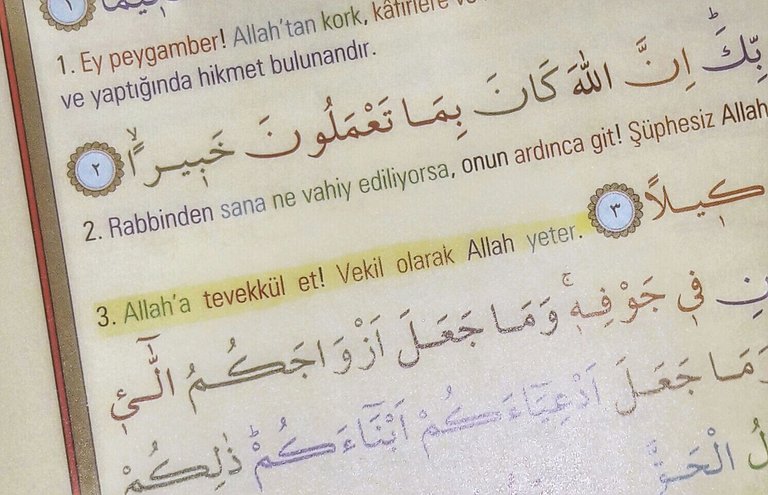 ١
1. Ey peygamber! Allah’tan kork, kâfirlere
ve yaptığında hikmet bulunandır.
رَبِّكَۜ اِنَّ اللّٰهَ كَانَ بِمَا تَعْمَلُونَ خَب۪يرًاۙ ٢
2. Rabbinden sana ne vahiy ediliyorsa, onun ardınca git! Şüphesiz Allah
وَك۪يلًا ٣
3. Allah’a tevekkül et! Vekil olarak Allah yeter.
ف۪ي جَوْفِه۪ۚ وَمَا جَعَلَ اَزْوَاجَكُمُ الّٰٓـ۪ٔي
وَمَا جَعَلَ اَدْعِيَٓاءَكُمْ اَبْنَٓاءَكُمْۜ ذٰلِكُمْ
الْحَقَّ